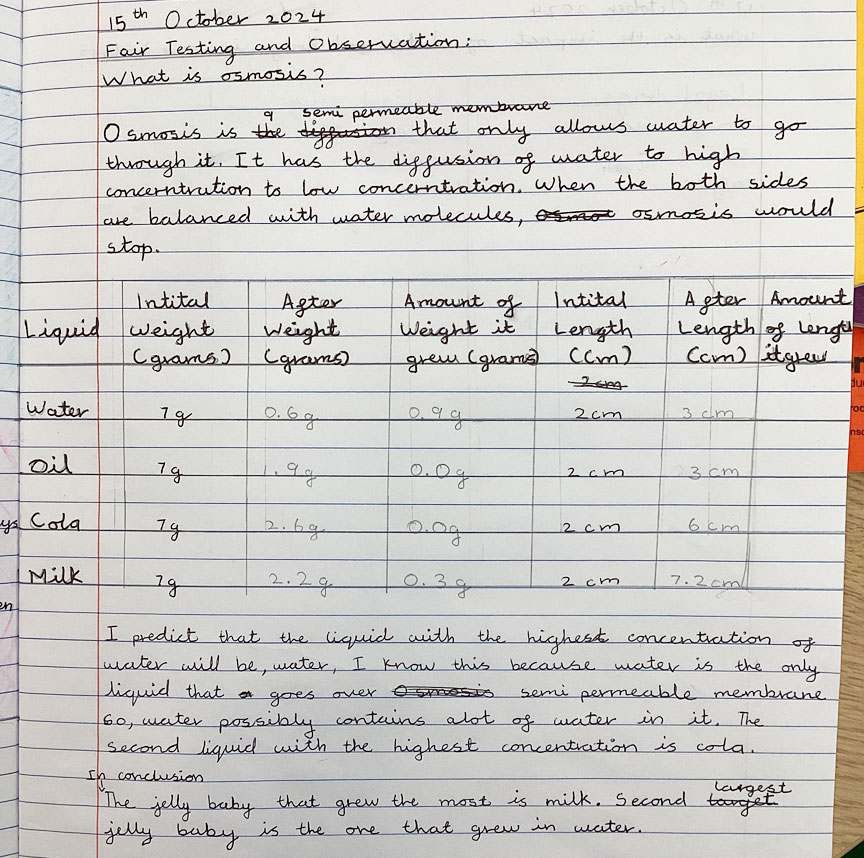 15th October 2024
Fair Testing and Observation:
What is osmosis?
a semi permeable membrane
Osmosis is the diffusion that only allows water to go
through it. It has the diffusion of water to high
concerntration to low concerntration. When the both sides
are balanced with water molecules, Osmot osmosis would
stop.
Liquid | Intital Weight (grams) | After Weight (grams) | Amount of Weight it grew (grams) | Intital Length (Cm) | After Length (cm) | Amount of length it grew
2cm
Water | 7g | 0.6g | 0.9g | 2cm | 3 cm
Oil | 7g | 1.9g | 0.0g | 2 cm | 3 cm
Cola | 7g | 2.6g | 0.0g | 2 cm | 6 cm
Milk | 7g | 2.2g | 0.3g | 2 cm | 7.2cm
ys
en
I predict that the liquid with the highest concentration of
water will be, water, I know this because water is the only
liquid that a goes over Osmosis semi permeable membrane
so, water possibly contains alot of water in it. The
second liquid with the highest concentration is cola.
In conclusion
largest
The jelly baby that grew the most is milk. Second target
jelly baby is the one that grew in water.